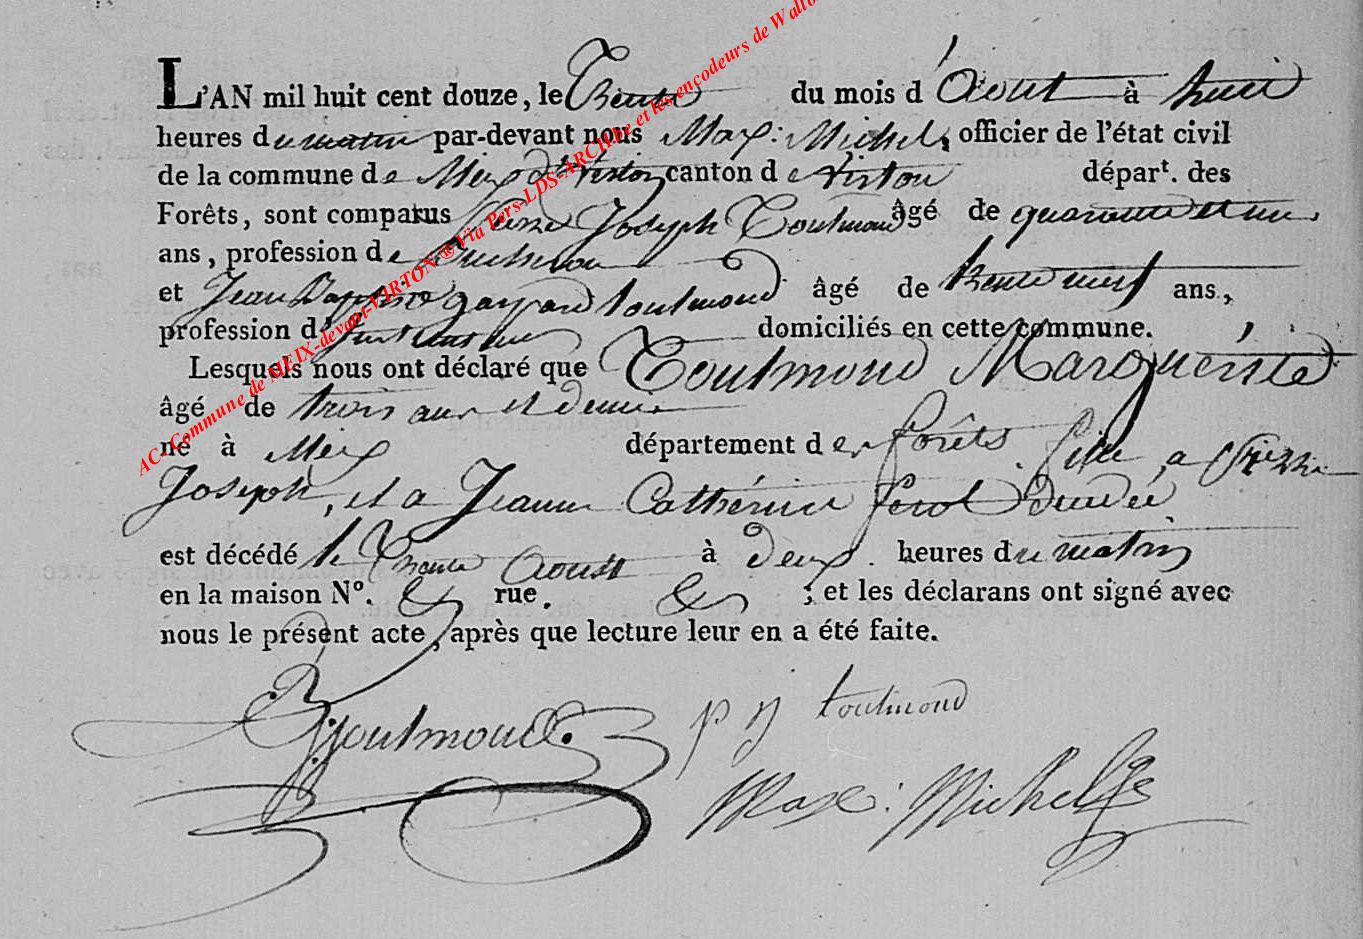 L'AN mil huit cent douze, le Trente du mois d'Aout à huit
heures du matin par-devant nous Max: Michel, officier de l'état civil
de la commune de Meix dt Virton canton de Virton départ. des
Forêts, sont comparus Pierre Joseph Toutmond âgé de quarante et un
ans, profession de
et Jean Baptiste gaspard toutmond âgé de trente neuf ans,
profession d' domiciliés en cette commune.
Lesquels nous ont déclaré que Toutmond Marguerite
âgé de trois ans et demie
né à Meix département des forêts fille a Pierre
Joseph, et a Jeanne Cathérine
est décédé le Trente Aoust à deux heures du matin
en la maison N°. rue. ; et les déclarans ont signé avec
nous le présent acte, après que lecture leur en a été faite.
toutmond. p j toutmond
Max: Michel
AC- Commune de MEIX-devant-VIRTON ® Via Pers-LDS-ARCHive et les encodeurs de Wallo